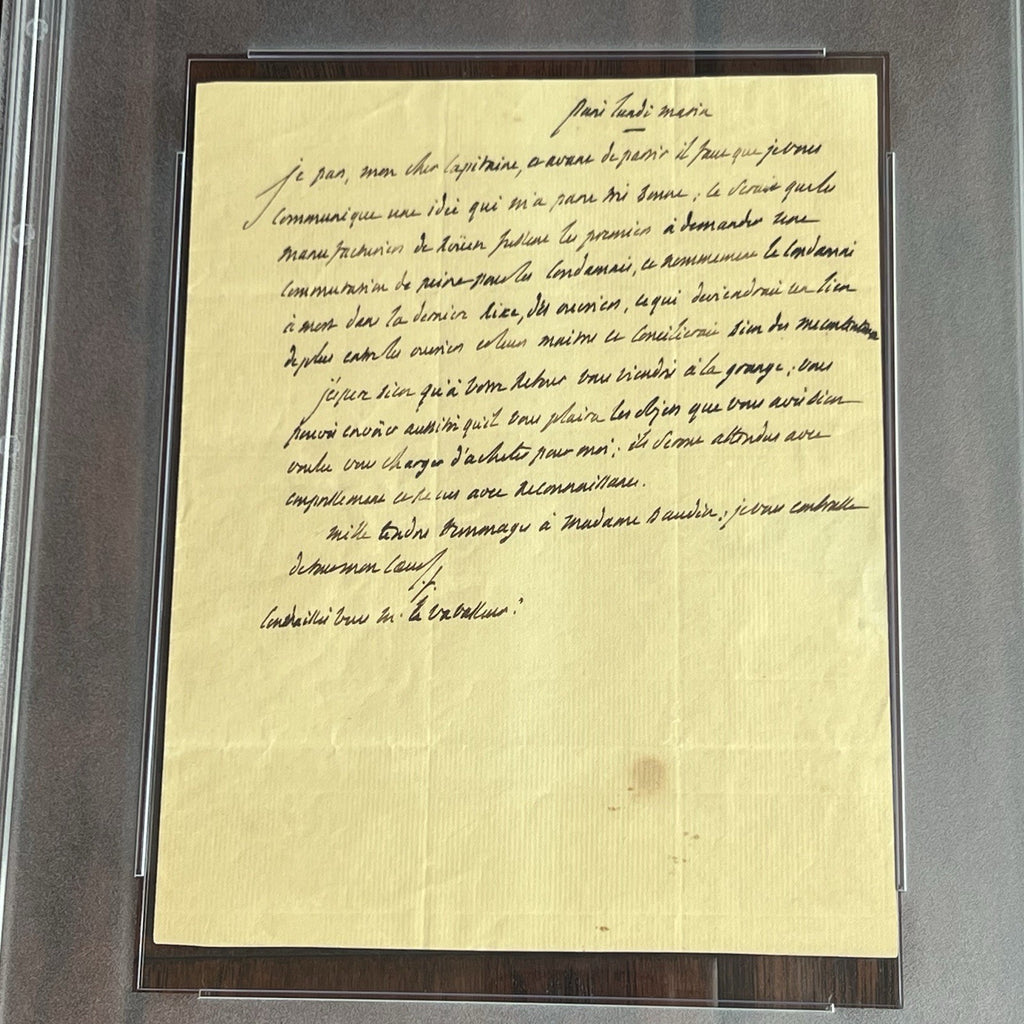 Paris lundi matin
je pars, mon cher Capitaine, et avant de partir il faut que je vous
communique une idée qui m'a paru très bonne; ce serait que les
manufacturiers de Roüen fussent les premiers à demander une
commutation de peine pour les Condamnés, et nommement le Condamné
à mort dans la derniere rixe, des ouvriers, ce qui deviendrait un lien
de plus entre les ouvriers et leurs maitres et concilierait bien des mecontentemens
j'espere bien qu'à votre retour vous viendrés à la grange; vous
pouvés envoïer aussitôt qu'il vous plaira les objets que vous aviés bien
voulu vous charger d'acheter pour moi; ils seront attendus avec
empressement et recus avec reconnaissance.
mille tendres hommages à Madame Baudin; je vous embrasse
de tout mon Coeur
vous M. le vavasseur?